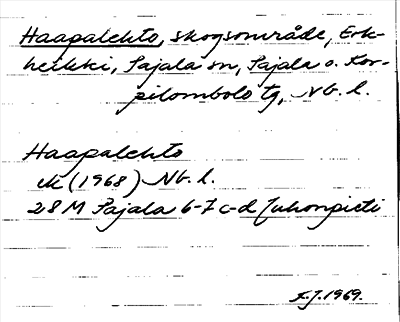 Haapalehto, skogsområde, Erk-
heikki, Pajala sn, Pajala o. Kor-
pilombolo tg, Nb. l.
Haapalehto
ek (1968) Nb. l.
28 M Pajala 6-7 c-d Juhonpieti
F.J. 1969.